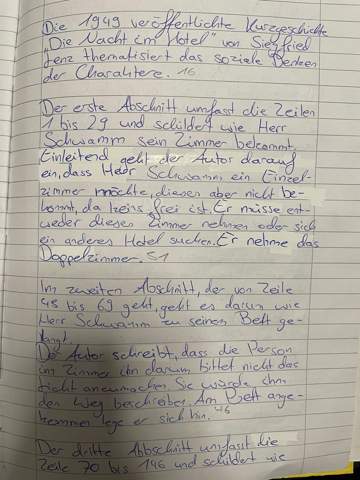 Die 1949 veröffentlichte Kurzgeschichte
"Die Nacht im Hotel" von Siegfried
Lenz thematisiert das soziale Denken
der Charaktere. 16
Der erste Abschnitt umfast die Zeilen
1 bis 29 und schildert wie Herr
Schwamm sein Zimmer bekommt.
Einleitend geht der Autor darauf
ein, dass Herr Schwamm ein Einzel-
zimmer möchte, dieses aber nicht be-
kommt, da keins frei ist. Er müsse ent-
weder dieses Zimmer nehmen oder sich
ein anderes Hotel suchen. Er nehme das
Doppelzimmer. 51
Im zweiten Abschnitt, der von Zeile
45 bis 69 geht, geht es darum wie
Herr Schwamm zu seinem Bett ge-
langt.
Der Autor schreibt, dass die Person
im Zimmer ihn darum bittet nicht das
Licht anzumachen. Sie würde ihm
den Weg beschreiben. Am Bett ange-
kommen lege er sich hin. 46
Der dritte Abbschnitt umfast die
Zeile 70 bis 146 und schildert wie